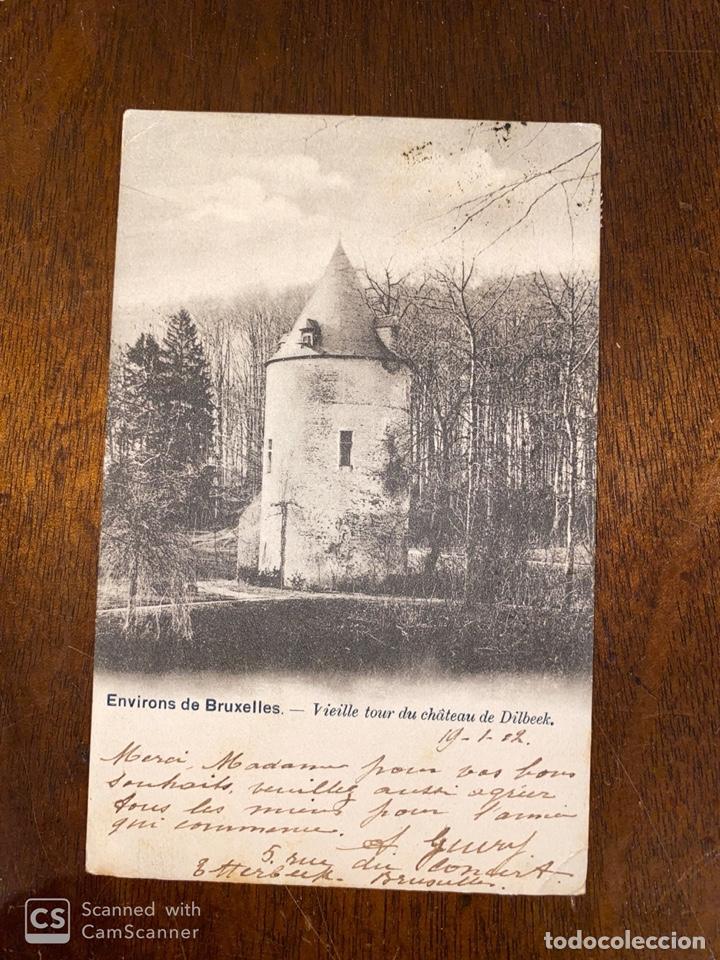 Environs de Bruxelles. — Vieille tour du château de Dilbeek.
19-1-02.
Merci, Madame pour vos bons
souhaits, veuillez aussi agréer
tous les miens pour l'année
qui commence.
5, rue du Concert.
Etterbeek. Bruxelles.
CS Scanned with
CamScanner
todocoleccion